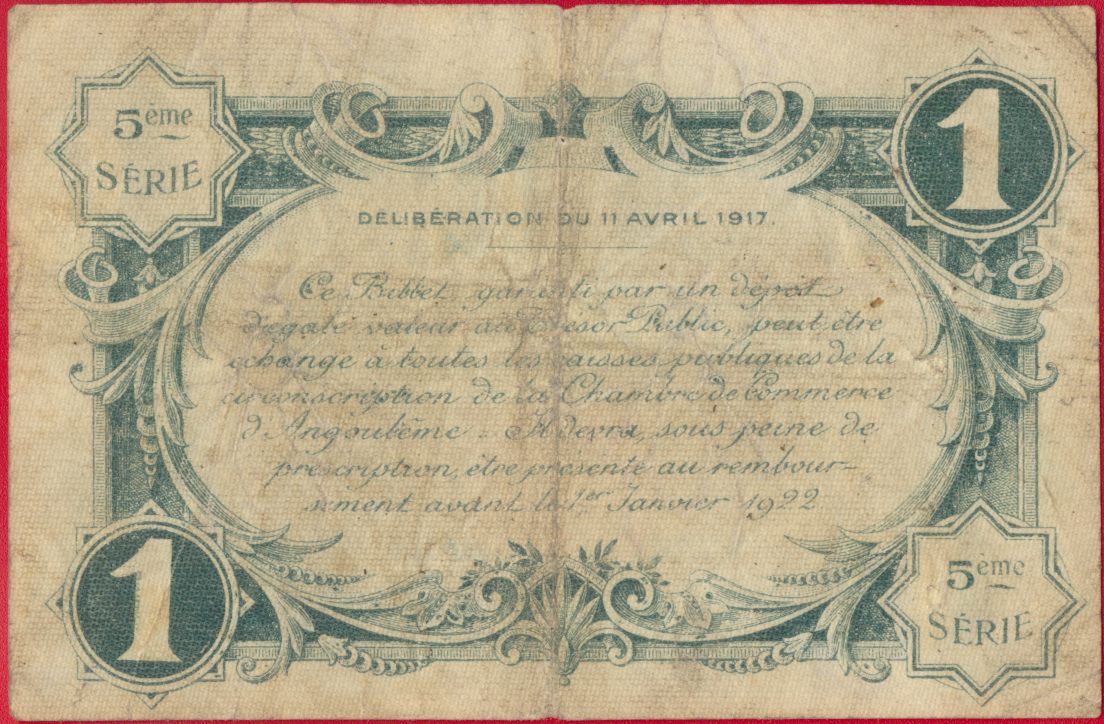 5ème
SÉRIE
1
DÉLIBÉRATION DU 11 AVRIL 1917.
Ce Billet, garanti par un dépôt
d'égale valeur au Trésor Public, peut être
échangé à toutes les caisses publiques de la
circonscription de la Chambre de Commerce
d'Angoulême - Il devra, sous peine de
prescription, être présenté au rembour-
sement avant le 1er Janvier 1922
1
5ème
SÉRIE